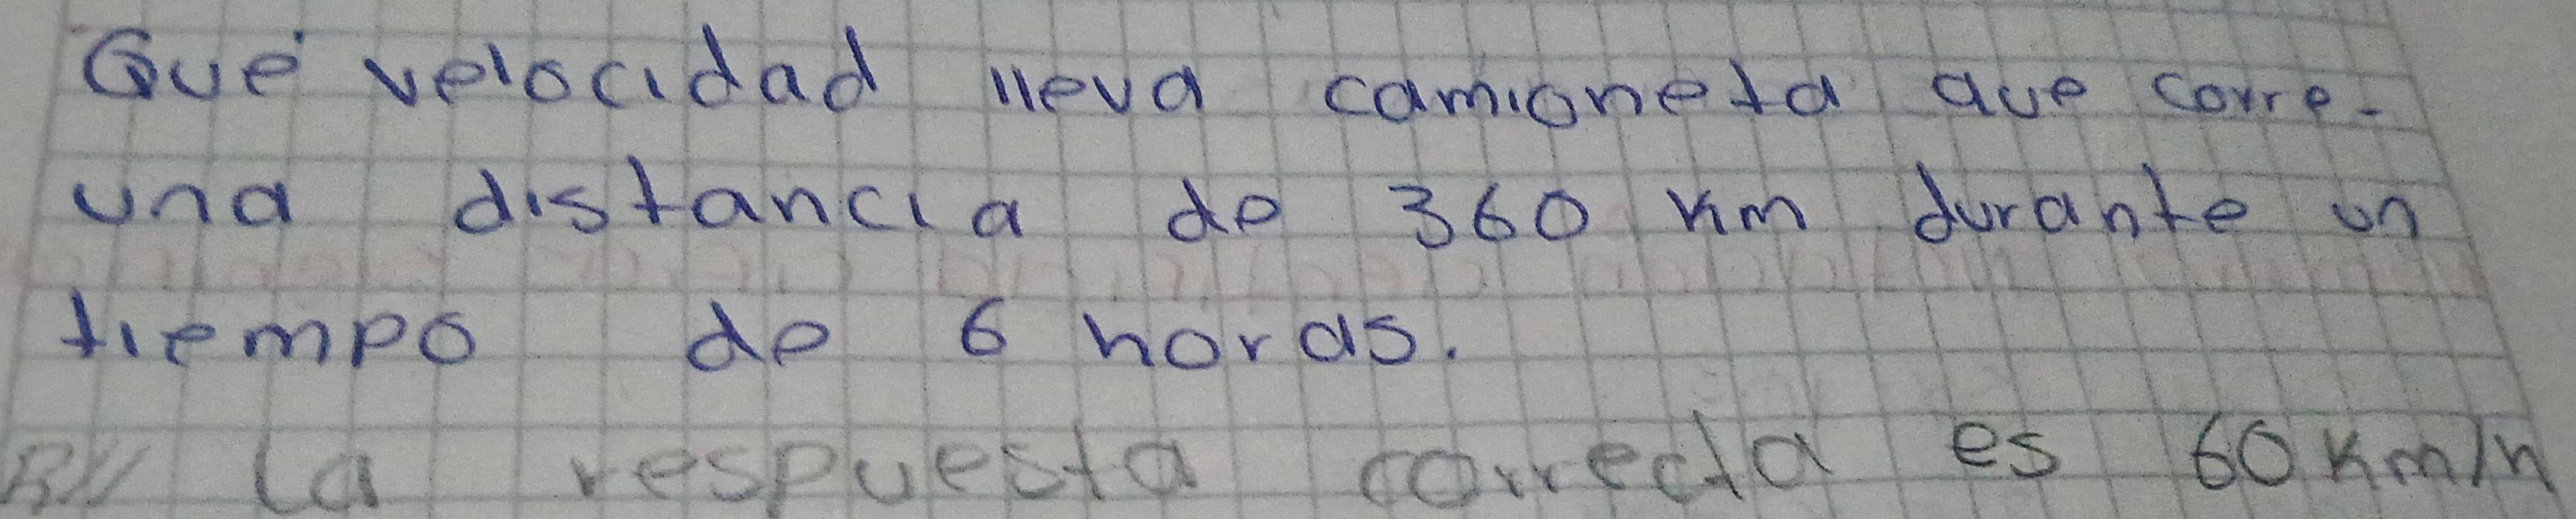 Qué velocidad lleva camioneta que corre-
una distancia de 360 Km durante un
tiempo de 6 horas.
R// La respuesta correcta es 60 Km/h